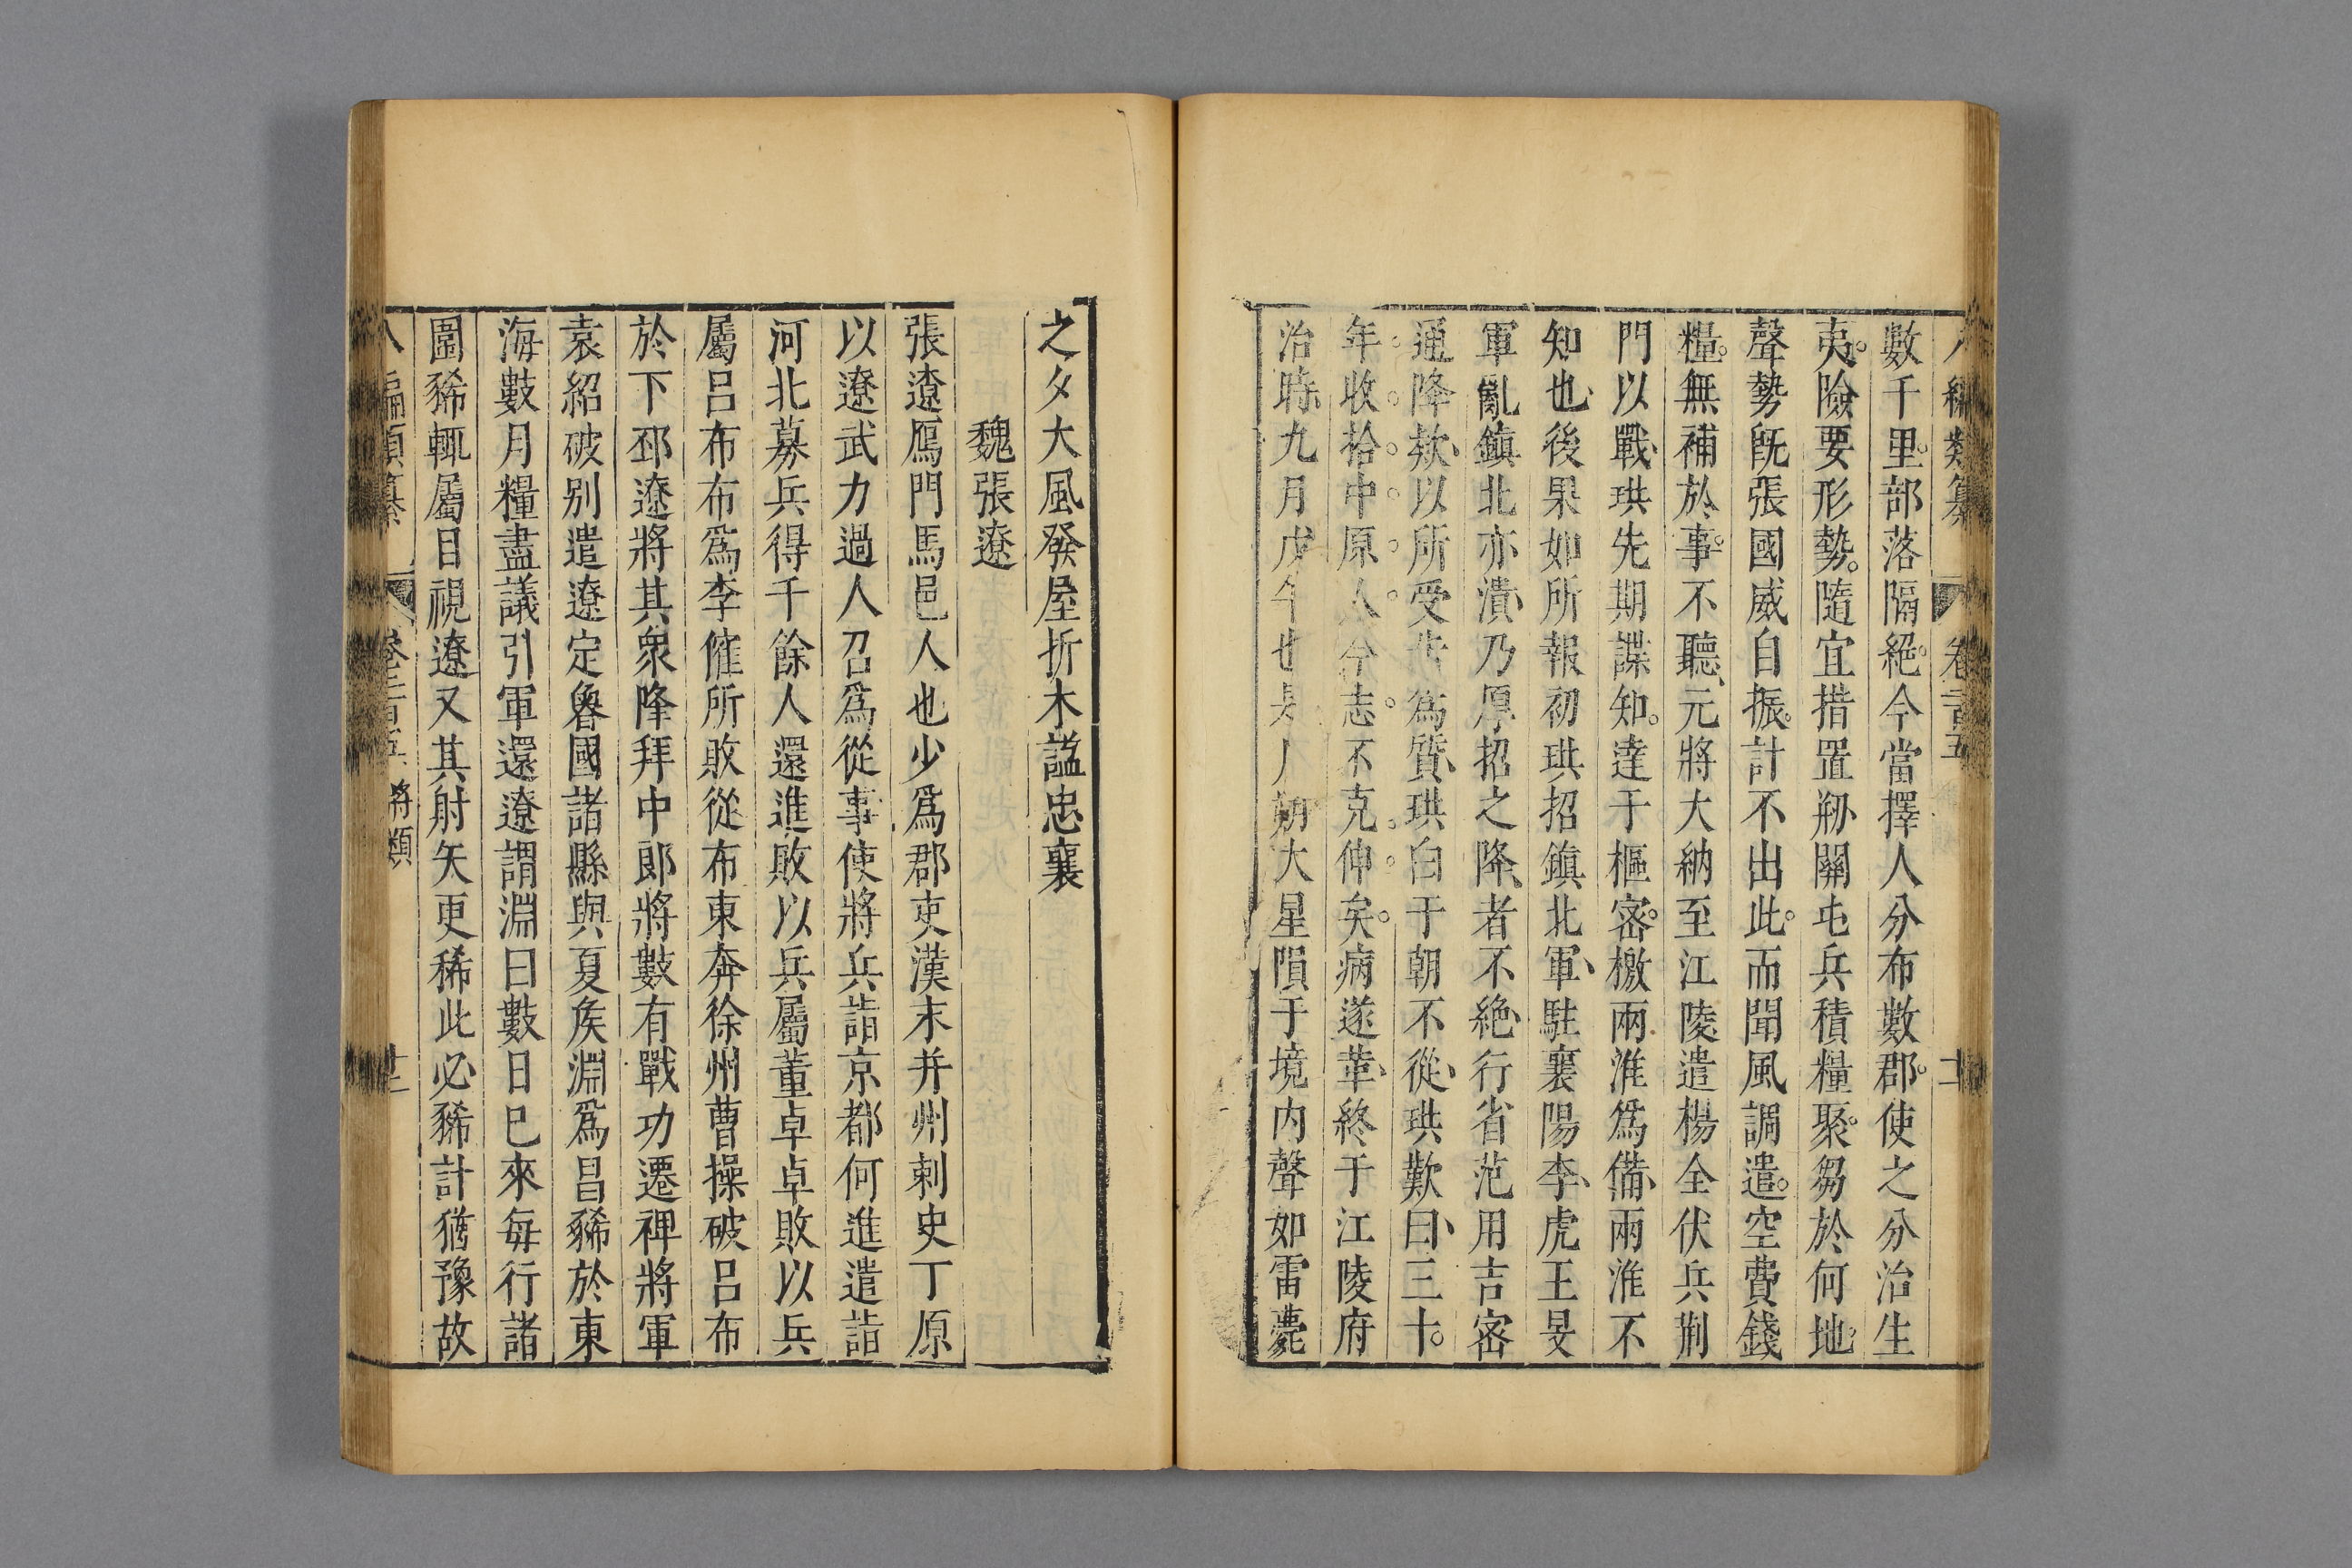 八編類纂 卷二百五 十一
數千里部落隔絕今當擇人分布數郡使之分治生
夷險要形勢隨宜措置剏關屯兵積糧聚芻於何地
聲勢既張國威自振計不出此而聞風調遣空費錢
糧無補於事不聽元將大納至江陵遣楊全伏兵荆
門以戰珙先期諜知達于樞密檄兩淮爲備兩淮不
知也後果如所報初珙招鎮北軍駐襄陽李虎王旻
軍亂鎮北亦潰乃厚招之降者不絶行省范用吉密
通降欵以所受告爲質珙白于朝不從珙歎曰三十
年收拾中原人今志不克伸矣病遂革終于江陵府
治時九月戊午也是月朔大星隕于境内聲如雷薨
之夕大風發屋折木諡忠襄
魏張遼
張遼鴈門馬邑人也少爲郡吏漢末并州刺史丁原
以遼武力過人召爲從事使將兵詣京都何進遣詣
河北募兵得千餘人還進敗以兵屬董卓卓敗以兵
屬吕布布爲李傕所敗從布東奔徐州曹操破吕布
於下邳遼將其衆降拜中郎將數有戰功遷裨將軍
袁紹破别遣遼定魯國諸縣與夏侯淵爲昌豨於東
海數月糧盡議引軍還遼謂淵曰數日已來每行諸
圍豨輒屬目視遼又其射矢更稀此必豨計猶豫故
八編類纂 卷二百五 將類 十二